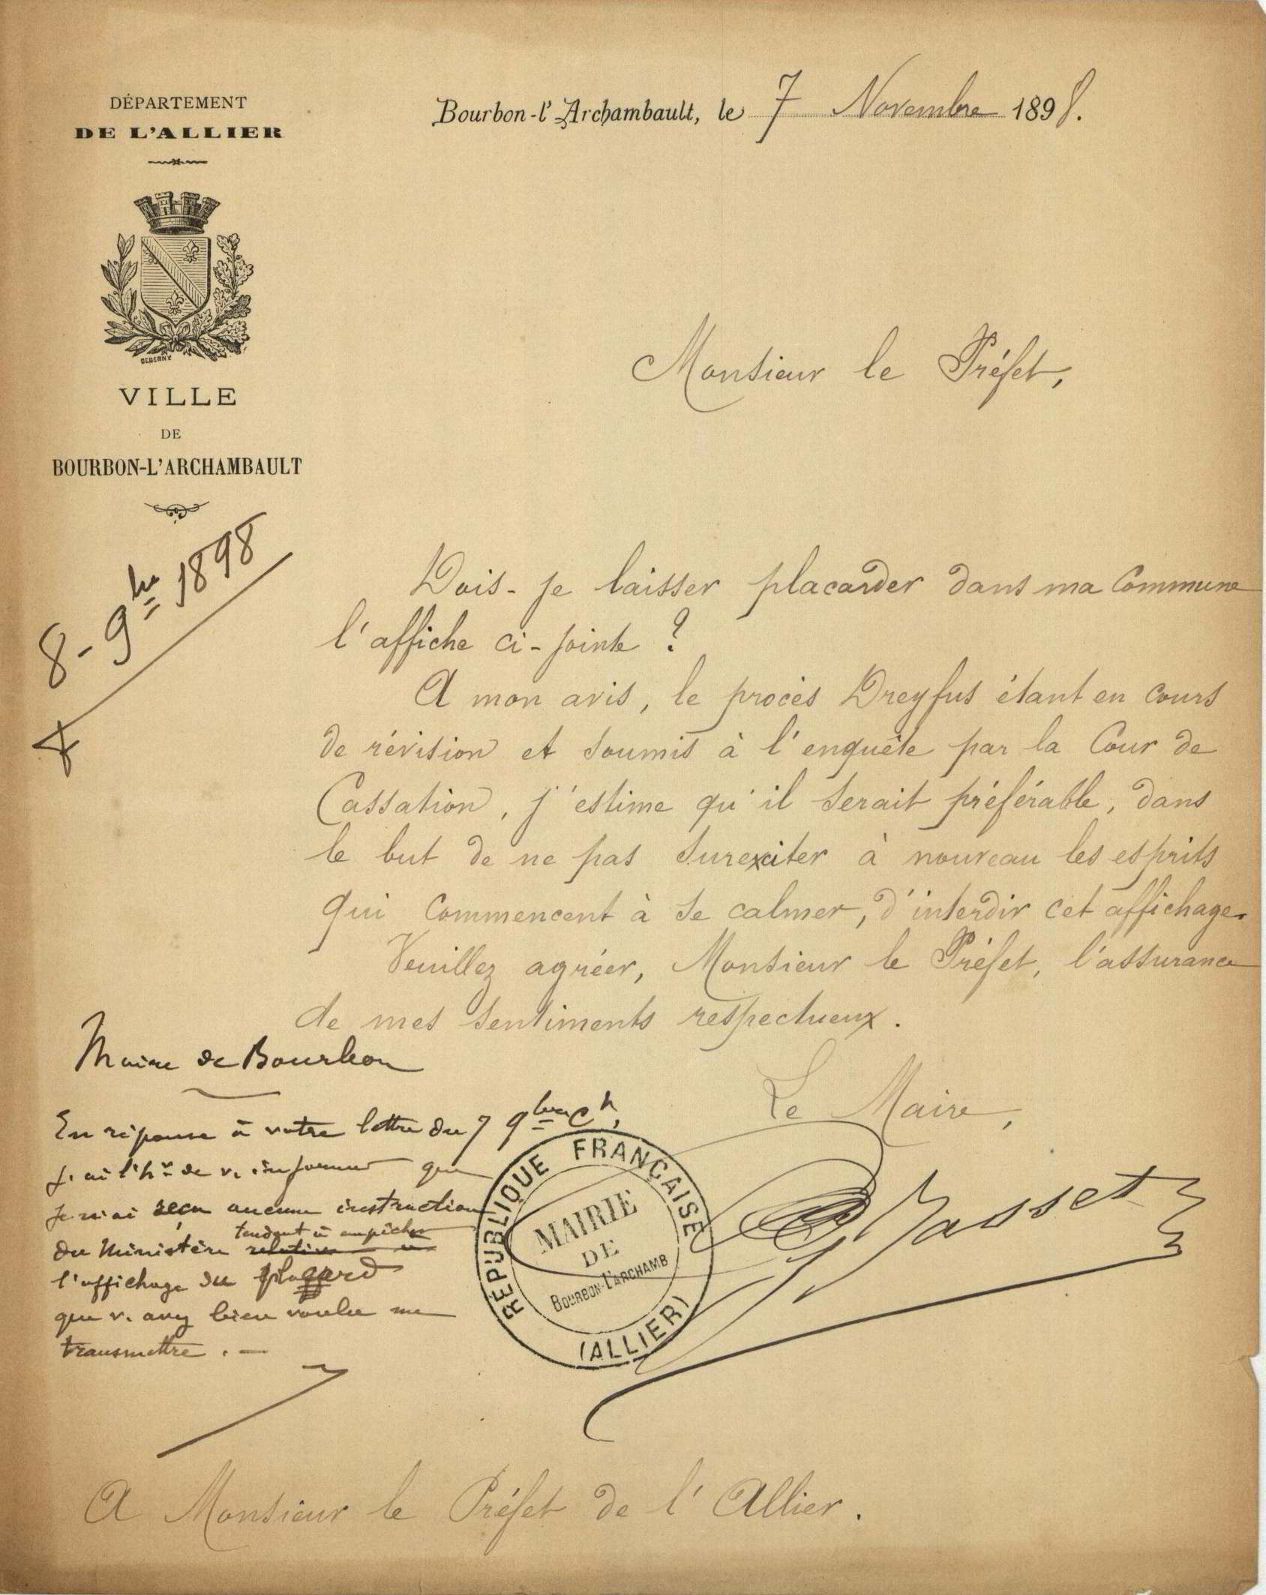 DÉPARTEMENT
DE L'ALLIER
Bourbon-l'Archambault, le 7 Novembre 1898.
DEBERNY
VILLE
DE
BOURBON-L'ARCHAMBAULT
8-9bre 1898
Monsieur le Préfet,
Dois-je laisser placarder dans ma Commune
l'affiche ci-jointe ?
A mon avis, le procès Dreyfus étant en cours
de révision et soumis à l'enquête par la Cour de
Cassation, j'estime qu'il serait préférable, dans
le but de ne pas surexciter à nouveau les esprits
qui commencent à se calmer, d'interdir cet affichage.
Veuillez agréer, Monsieur le Préfet, l'assurance
de mes sentiments respectueux.
Le Maire,
Basset
RÉPUBLIQUE FRANÇAISE
MAIRIE
DE
BOURBON-L'ARCHAMB
(ALLIER)
Maire de Bourbon
En réponse à votre lettre du 7 9bre Ct,
j'ai l'hr de v. informer que
je n'ai reçu aucune instruction
du Ministère relative à tendant à empêcher
l'affichage du placard
que v. avez bien voulu me
transmettre. —
A Monsieur le Préfet de l'Allier.